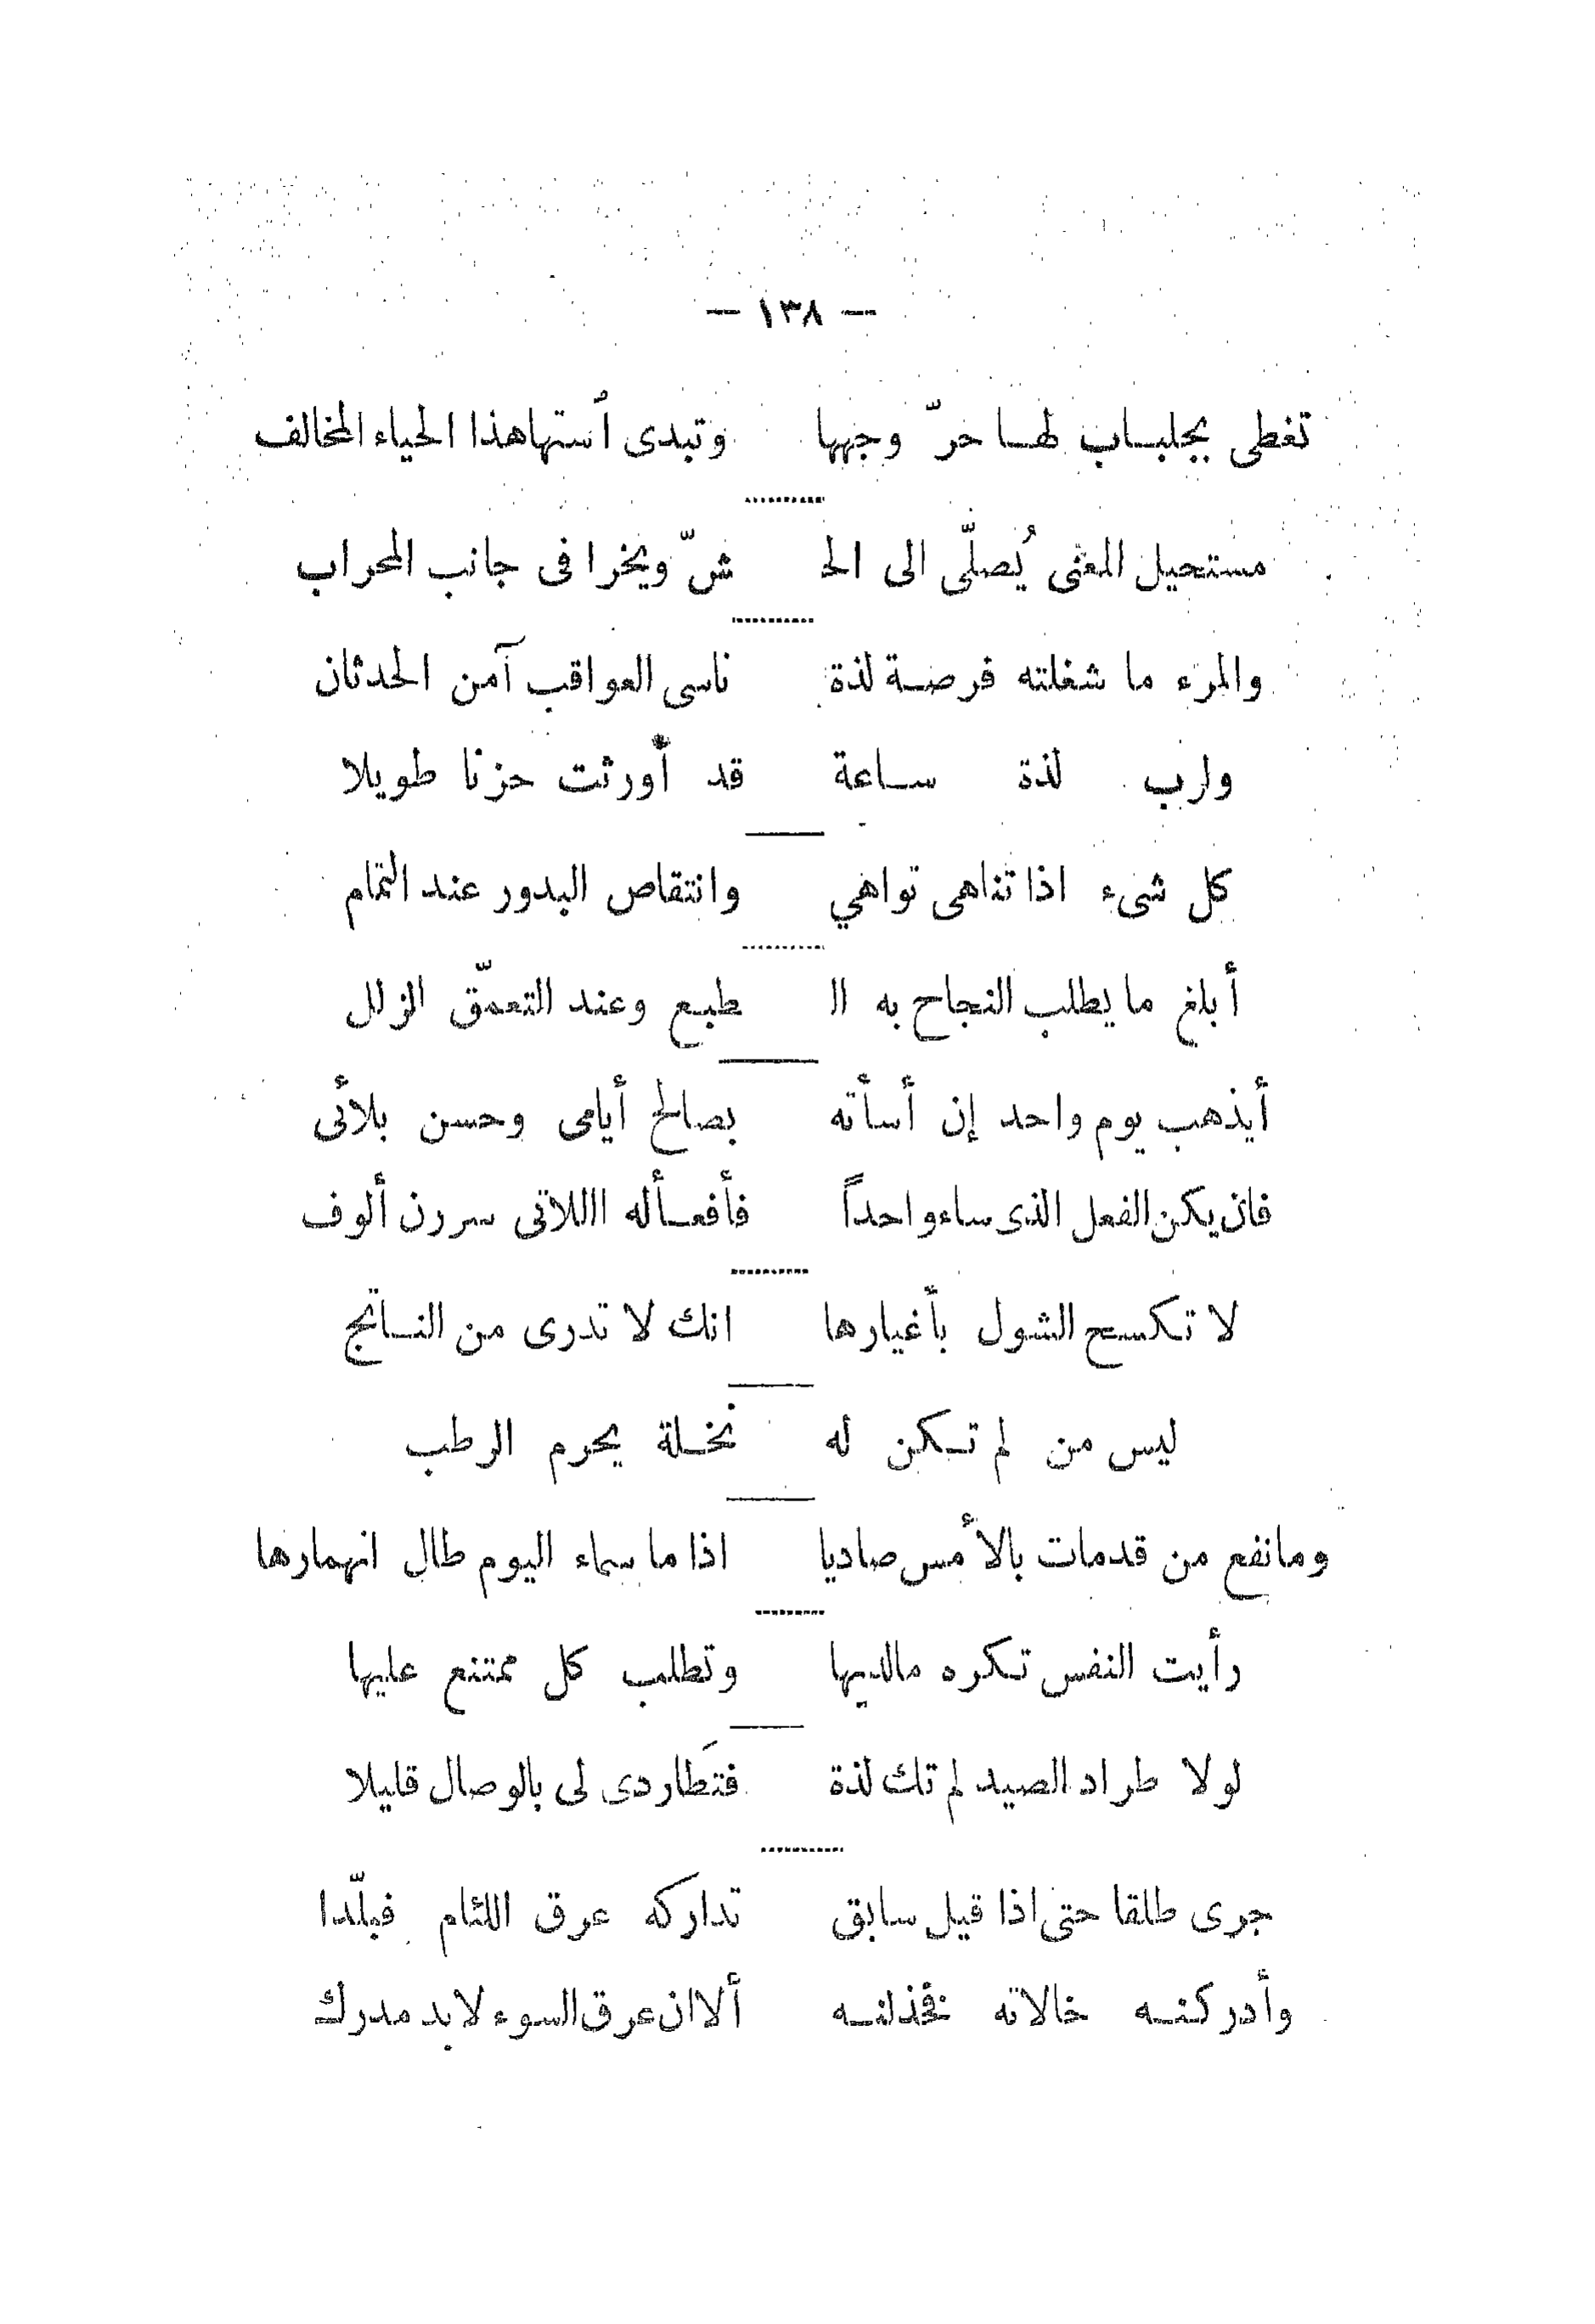 — ١٣٨ —
تغطى بجلباب لها حرّ وجهها وتبدى أستها هذا الحياء المخالف
مستحيل المعنى يُصلّى الى الحـ شّ ويخرا فى جانب المحراب
والمرء ما شغلته فرصة لذة ناسى العواقب آمن الحدثان
ولرب لذة ساعة قد أورثت حزنا طويلا
كل شىء اذا تناهى تواهي وانتقاص البدور عند التمام
أبلغ ما يطلب النجاح به الـ طبع وعند التعمّق الزلل
أيذهب يوم واحد إن أسأته بصالح أيامى وحسن بلائى
فان يكن الفعل الذى ساء واحداً فأفعاله اللاتى سررن ألوف
لا تكسح الشول بأغيارها انك لا تدرى من الناتج
ليس من لم تكن له نخلة يحرم الرطب
وما نفع من قد مات بالأمس صاديا اذا ما سماء اليوم طال انهمارها
رأيت النفس تكره ما لديها وتطلب كل ممتنع عليها
لولا طراد الصيد لم تك لذة فتَطاردى لى بالوصال قليلا
جرى طلقا حتى اذا قيل سابق تداركه عرق اللئام فبلّدا
وأدركنه خالاته فخذلنه ألا ان عرق السوء لا بد مدرك